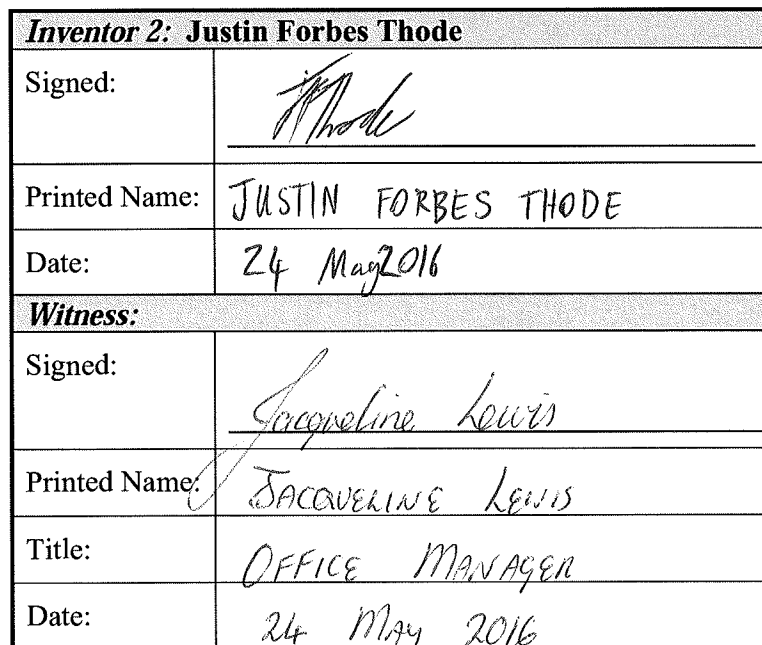 Inventor 2: Justin Forbes Thode
Signed: JFThode
Printed Name: JUSTIN FORBES THODE
Date: 24 May 2016
Witness:
Signed: Jacqueline Lewis
Printed Name: JACQUELINE LEWIS
Title: OFFICE MANAGER
Date: 24 MAY 2016